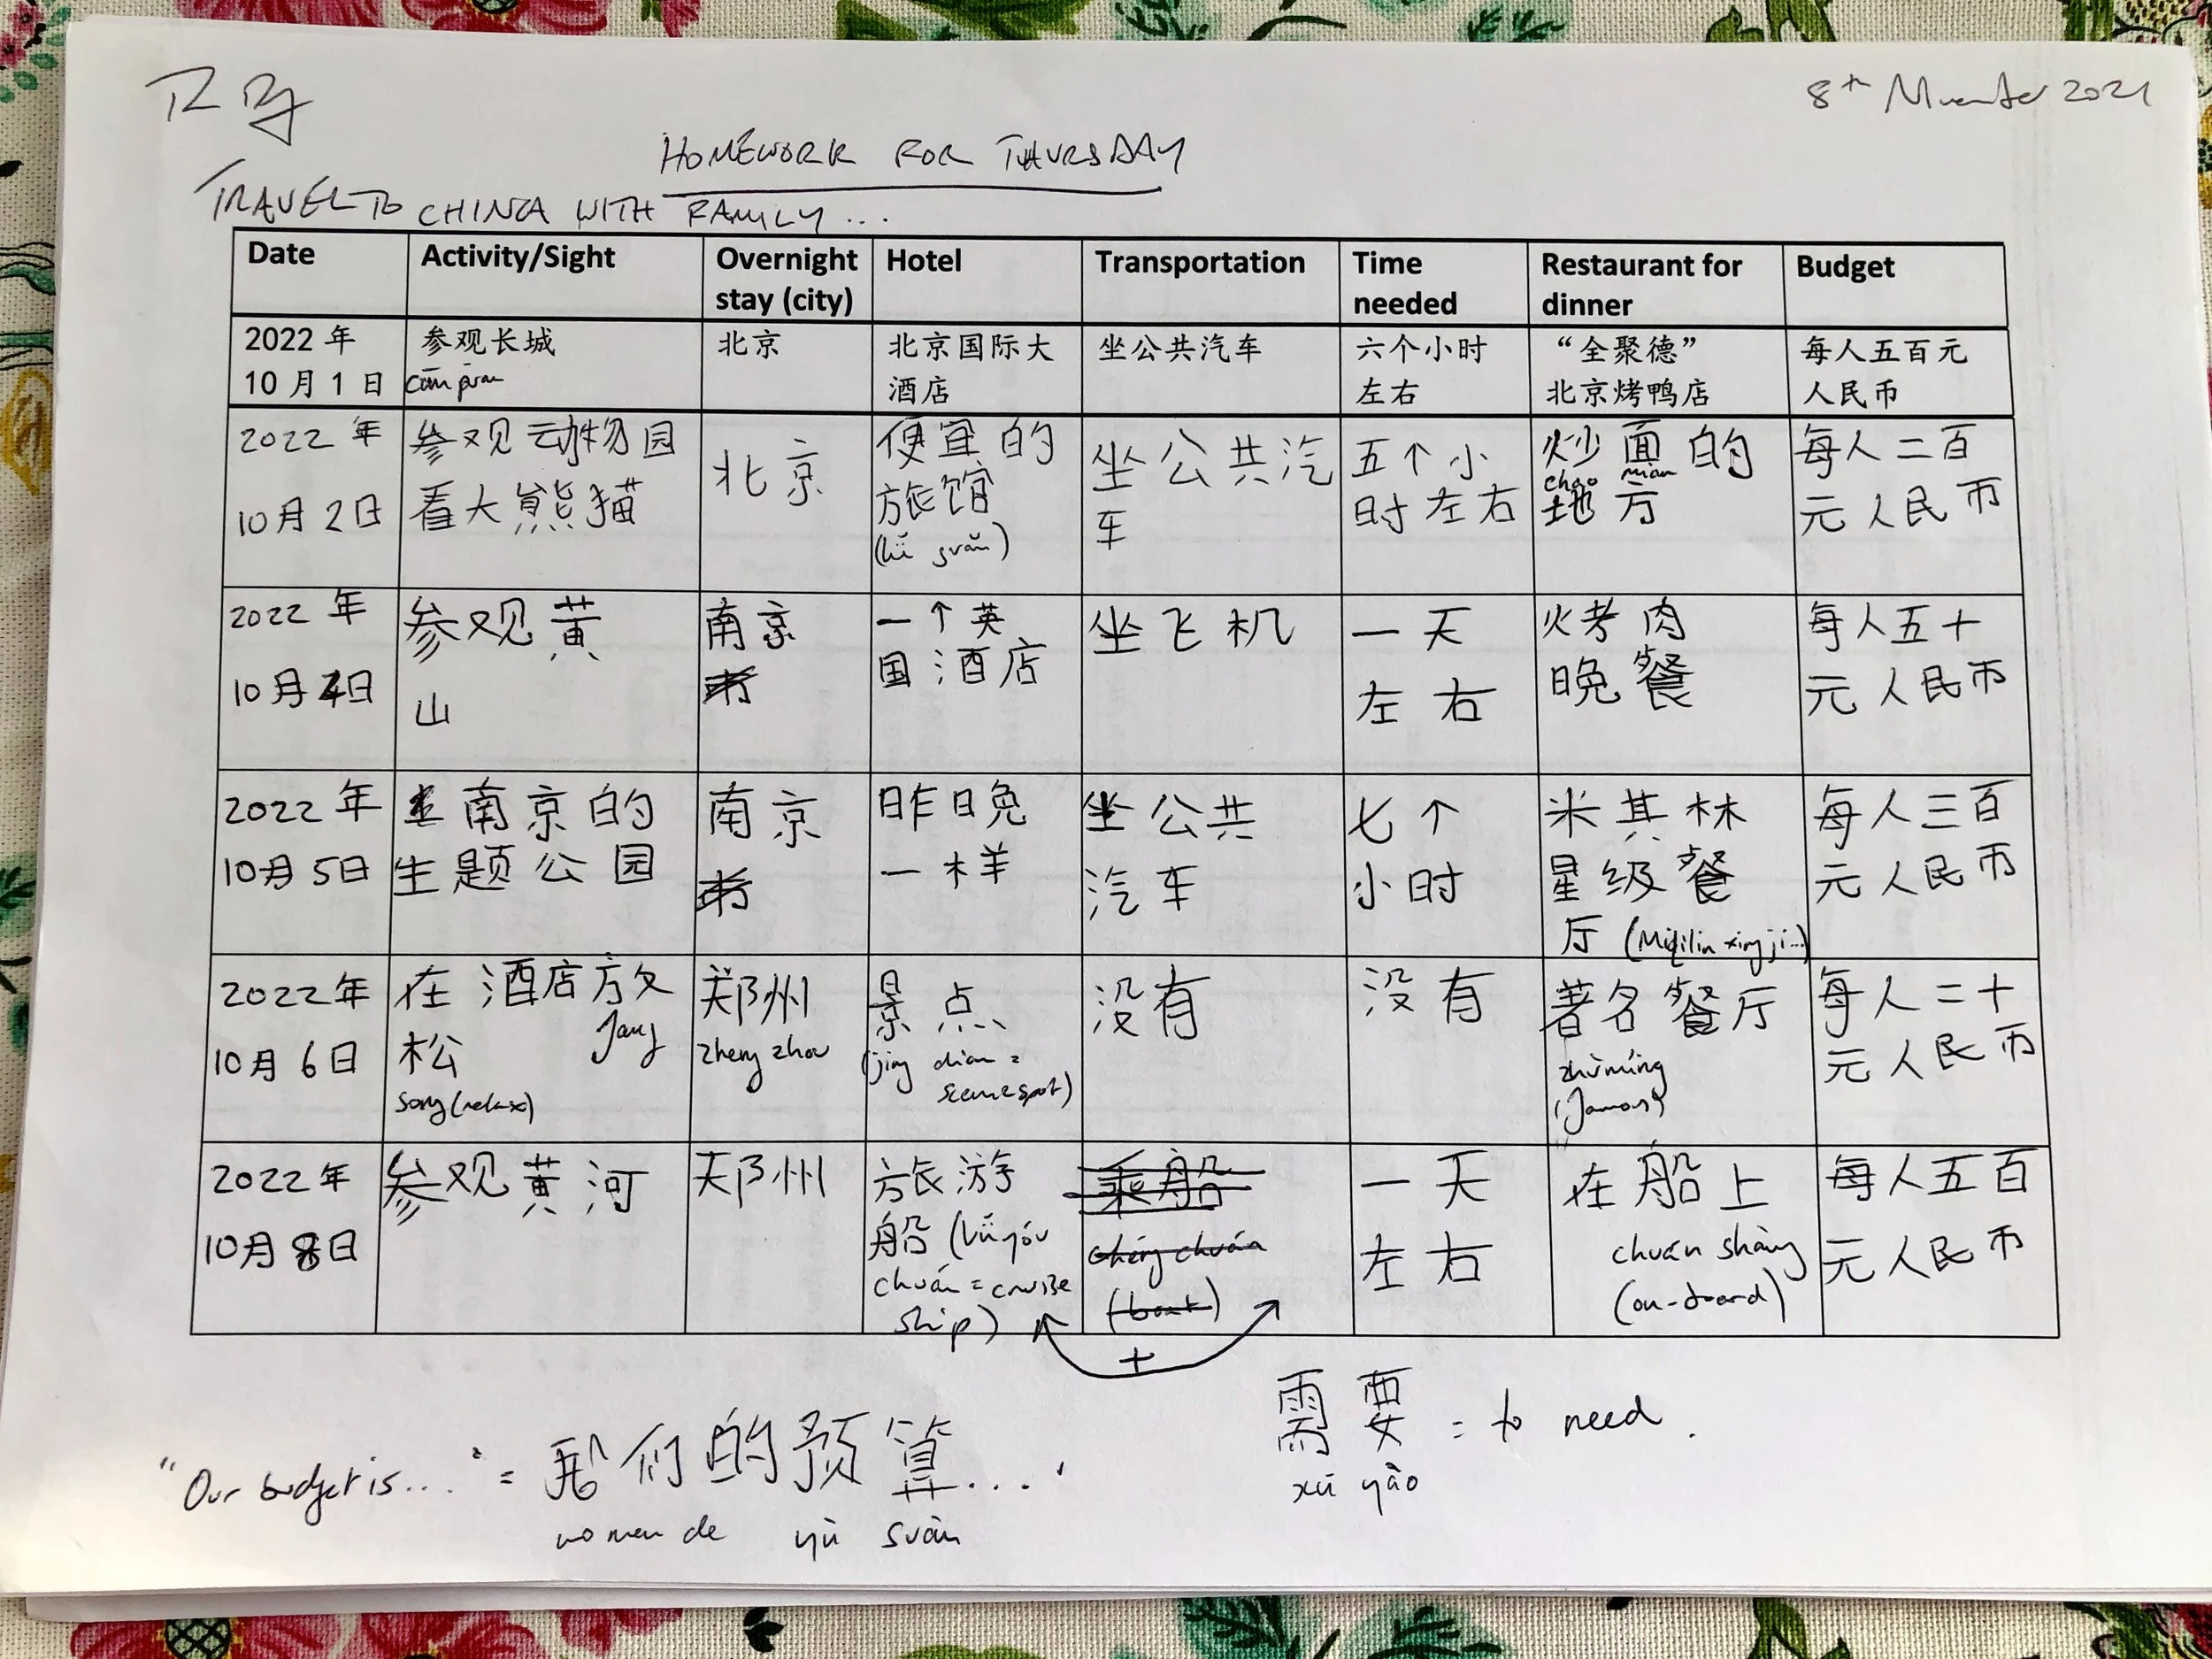 8th November 2021
HOMEWORK FOR THURSDAY
TRAVEL TO CHINA WITH FAMILY ...
Date
Activity/Sight
Overnight
stay (city)
Hotel
Transportation
Time
needed
Restaurant for
dinner
Budget
2022 年
10 月 1 日
参观长城
cān guān
北京
北京国际大
酒店
坐公共汽车
六个小时
左右
“全聚德”
北京烤鸭店
每人五百元
人民币
2022 年
10月2日
参观动物园
看大熊猫
北京
便宜的
旅馆
(lǚ guǎn)
坐公共汽
车
五个小
时左右
炒面的
chao mian
地方
每人二百
元人民币
2022 年
10月4日
参观黄
山
南京
一个英
国酒店
坐飞机
一天
左右
烤肉
晚餐
每人五十
元人民币
2022 年
10月5日
南京的
主题公园
南京
昨晚
一样
坐公共
汽车
七个
小时
米其林
星级餐
厅 (Miqilin xing ji...)
每人三百
元人民币
2022年
10月6日
在酒店放
fang
松
song (relax)
郑州
zheng zhou
景点
(jing dian =
scene spot)
没有
没有
著名餐厅
zhùmíng
(famous)
每人二十
元人民币
2022年
10月8日
参观黄河
郑州
旅游
船 (lǚ yóu
chuán = cruise
ship)
乘船
chéng chuán
(boat)
+
一天
左右
在船上
chuán shàng
(on-board)
每人五百
元人民币
"Our budget is..." = 我们的预算....
wo men de yù suàn
需要 = to need.
xū yào